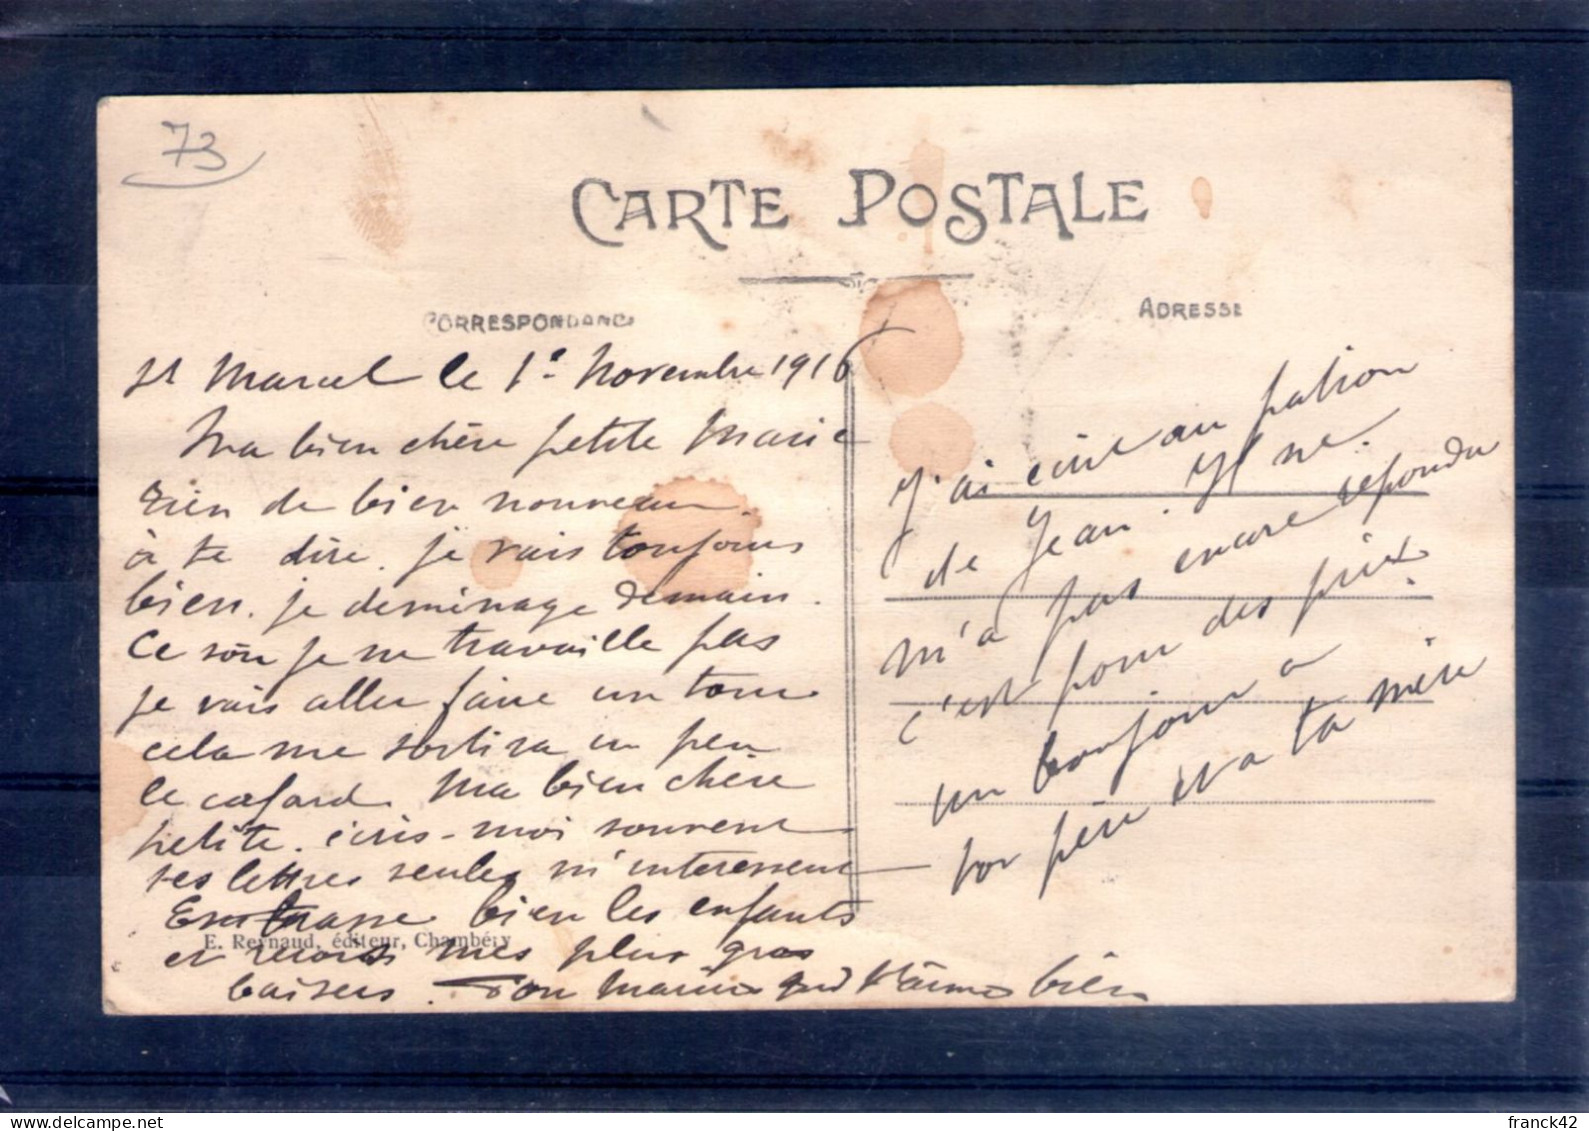 73
CARTE POSTALE
CORRESPONDANCE
ADRESSE
St Marcel le 1e Novembre 1916
Ma bien chère petite Marie
rien de bien nouveau
à te dire. je vais toujours
bien. je deminage demain.
Ce soir je ne travaille pas
je vais aller faire un tour
cela me sortira un peu
le cafard. Ma bien chère
petite. écris-moi souvent
tes lettres seules m'interessent
Embrasse bien les enfants
E. Reynaud, éditeur, Chambéry
et reçois mes plus gros
baisers. Ton Marius qui t'aime bien
J'ai écrit au patron
de Jean. Il ne.
m'a pas encore répondu
c'est pour des prix.
un bonjour a
ton père et a ta mère
www.delcampe.net
franck42